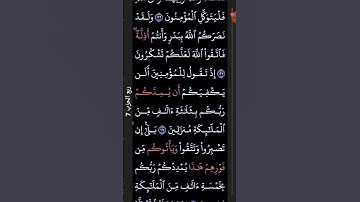 فَلْيَتَوَكَّلِ ٱلْمُؤْمِنُونَ ١٢٢ وَلَقَدْ
نَصَرَكُمُ ٱللَّهُ بِبَدْرٍ وَأَنتُمْ أَذِلَّةٌ
فَٱتَّقُوا۟ ٱللَّهَ لَعَلَّكُمْ تَشْكُرُونَ
١٢٣ إِذْ تَقُولُ لِلْمُؤْمِنِينَ أَلَن
يَكْفِيَكُمْ أَن يُمِدَّكُمْ
رَبُّكُم بِثَلَٰثَةِ ءَالَٰفٍ مِّنَ
ٱلْمَلَٰٓئِكَةِ مُنزَلِينَ ١٢٤ بَلَىٰٓ إِن
تَصْبِرُوا۟ وَتَتَّقُوا۟ وَيَأْتُوكُم مِّن
فَوْرِهِمْ هَٰذَا يُمْدِدْكُمْ رَبُّكُم
بِخَمْسَةِ ءَالَٰفٍ مِّنَ ٱلْمَلَٰٓئِكَةِ
ربع الحزب 7